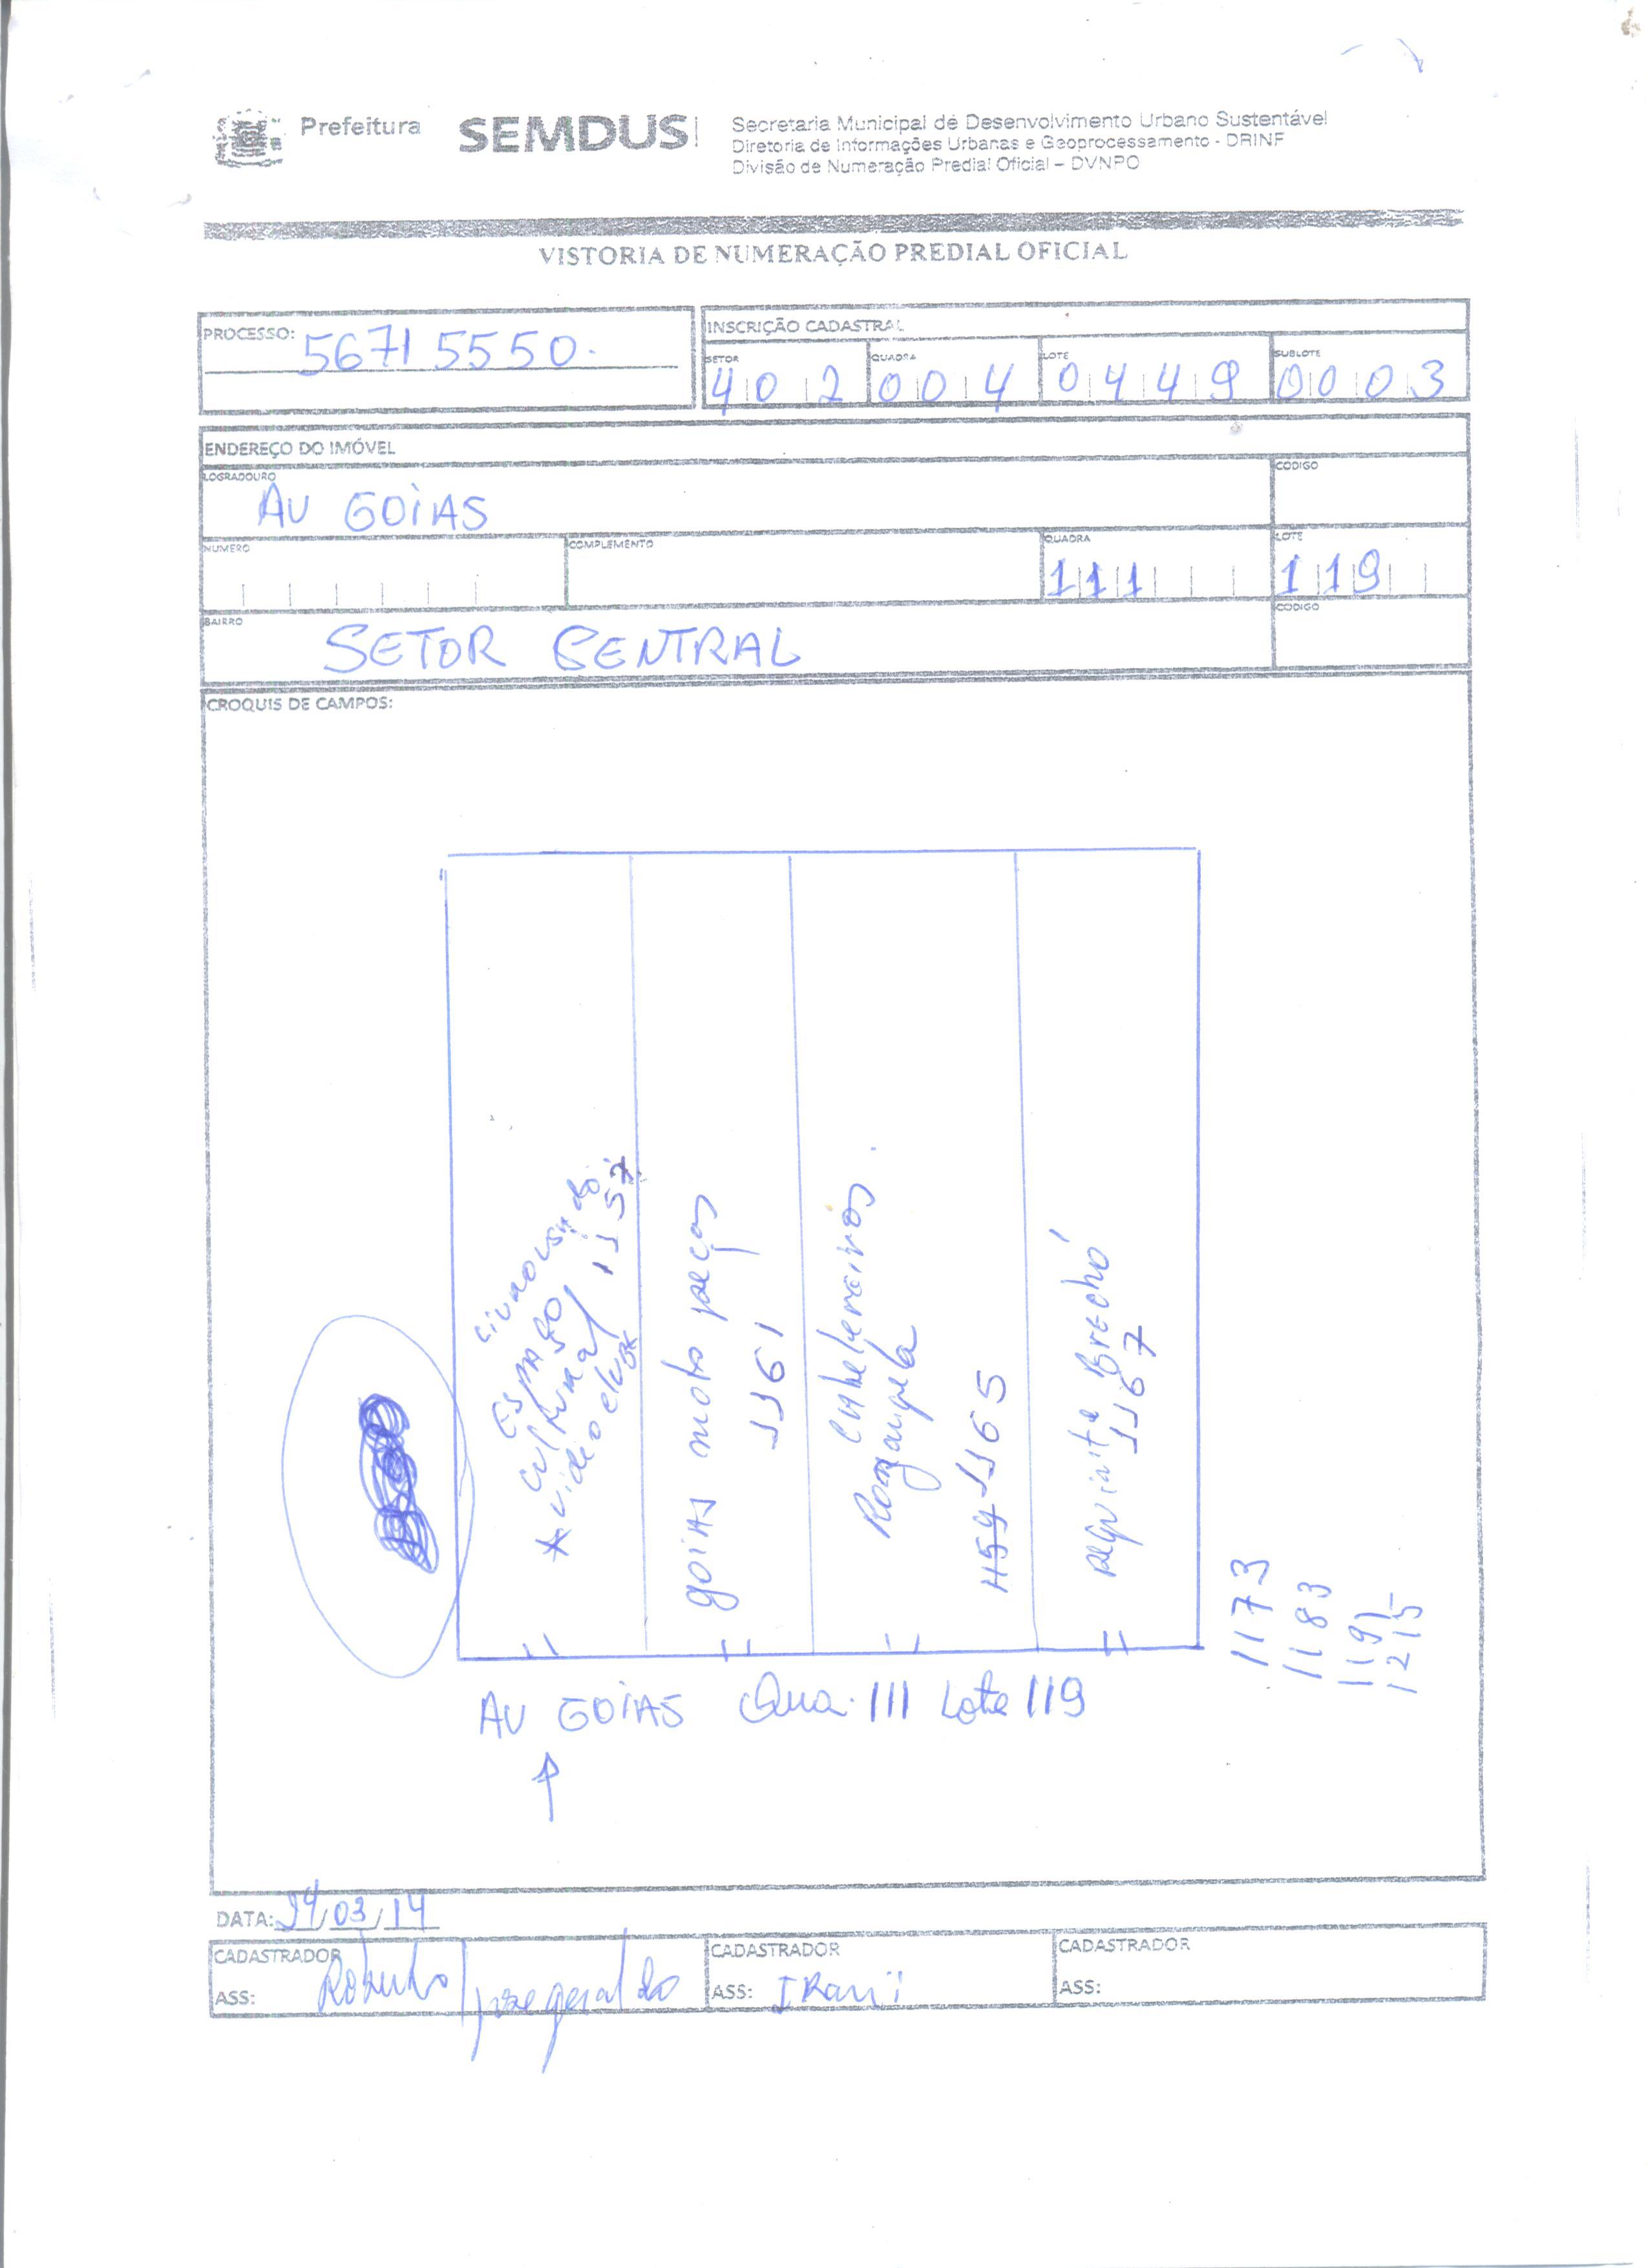 Prefeitura
SEMDUS
Secretaria Municipal de Desenvolvimento Urbano Sustentável
Diretoria de Informações Urbanas e Geoprocessamento - DRINF
Divisão de Numeração Predial Oficial – DVNPO
VISTORIA DE NUMERAÇÃO PREDIAL OFICIAL
PROCESSO: 56715550.
INSCRIÇÃO CADASTRAL
SETOR QUADRA LOTE SUBLOTE
402 004 0449 0003
ENDEREÇO DO IMÓVEL
LOGRADOURO CODIGO
AV GOIAS
NUMERO COMPLEMENTO QUADRA LOTE
111 119
BAIRRO CODIGO
SETOR CENTRAL
CROQUIS DE CAMPOS:
Espaço
Cultural 1157
goias moto peças
1161
Cabeleireiros
1165
Brechó
1167
1173
1183
1191
1215
AV GOIAS Qua. 111 Lote 119
DATA: 24/03/14
CADASTRADOR CADASTRADOR CADASTRADOR
ASS: Roberto / jose geraldo ASS: IRani ASS: